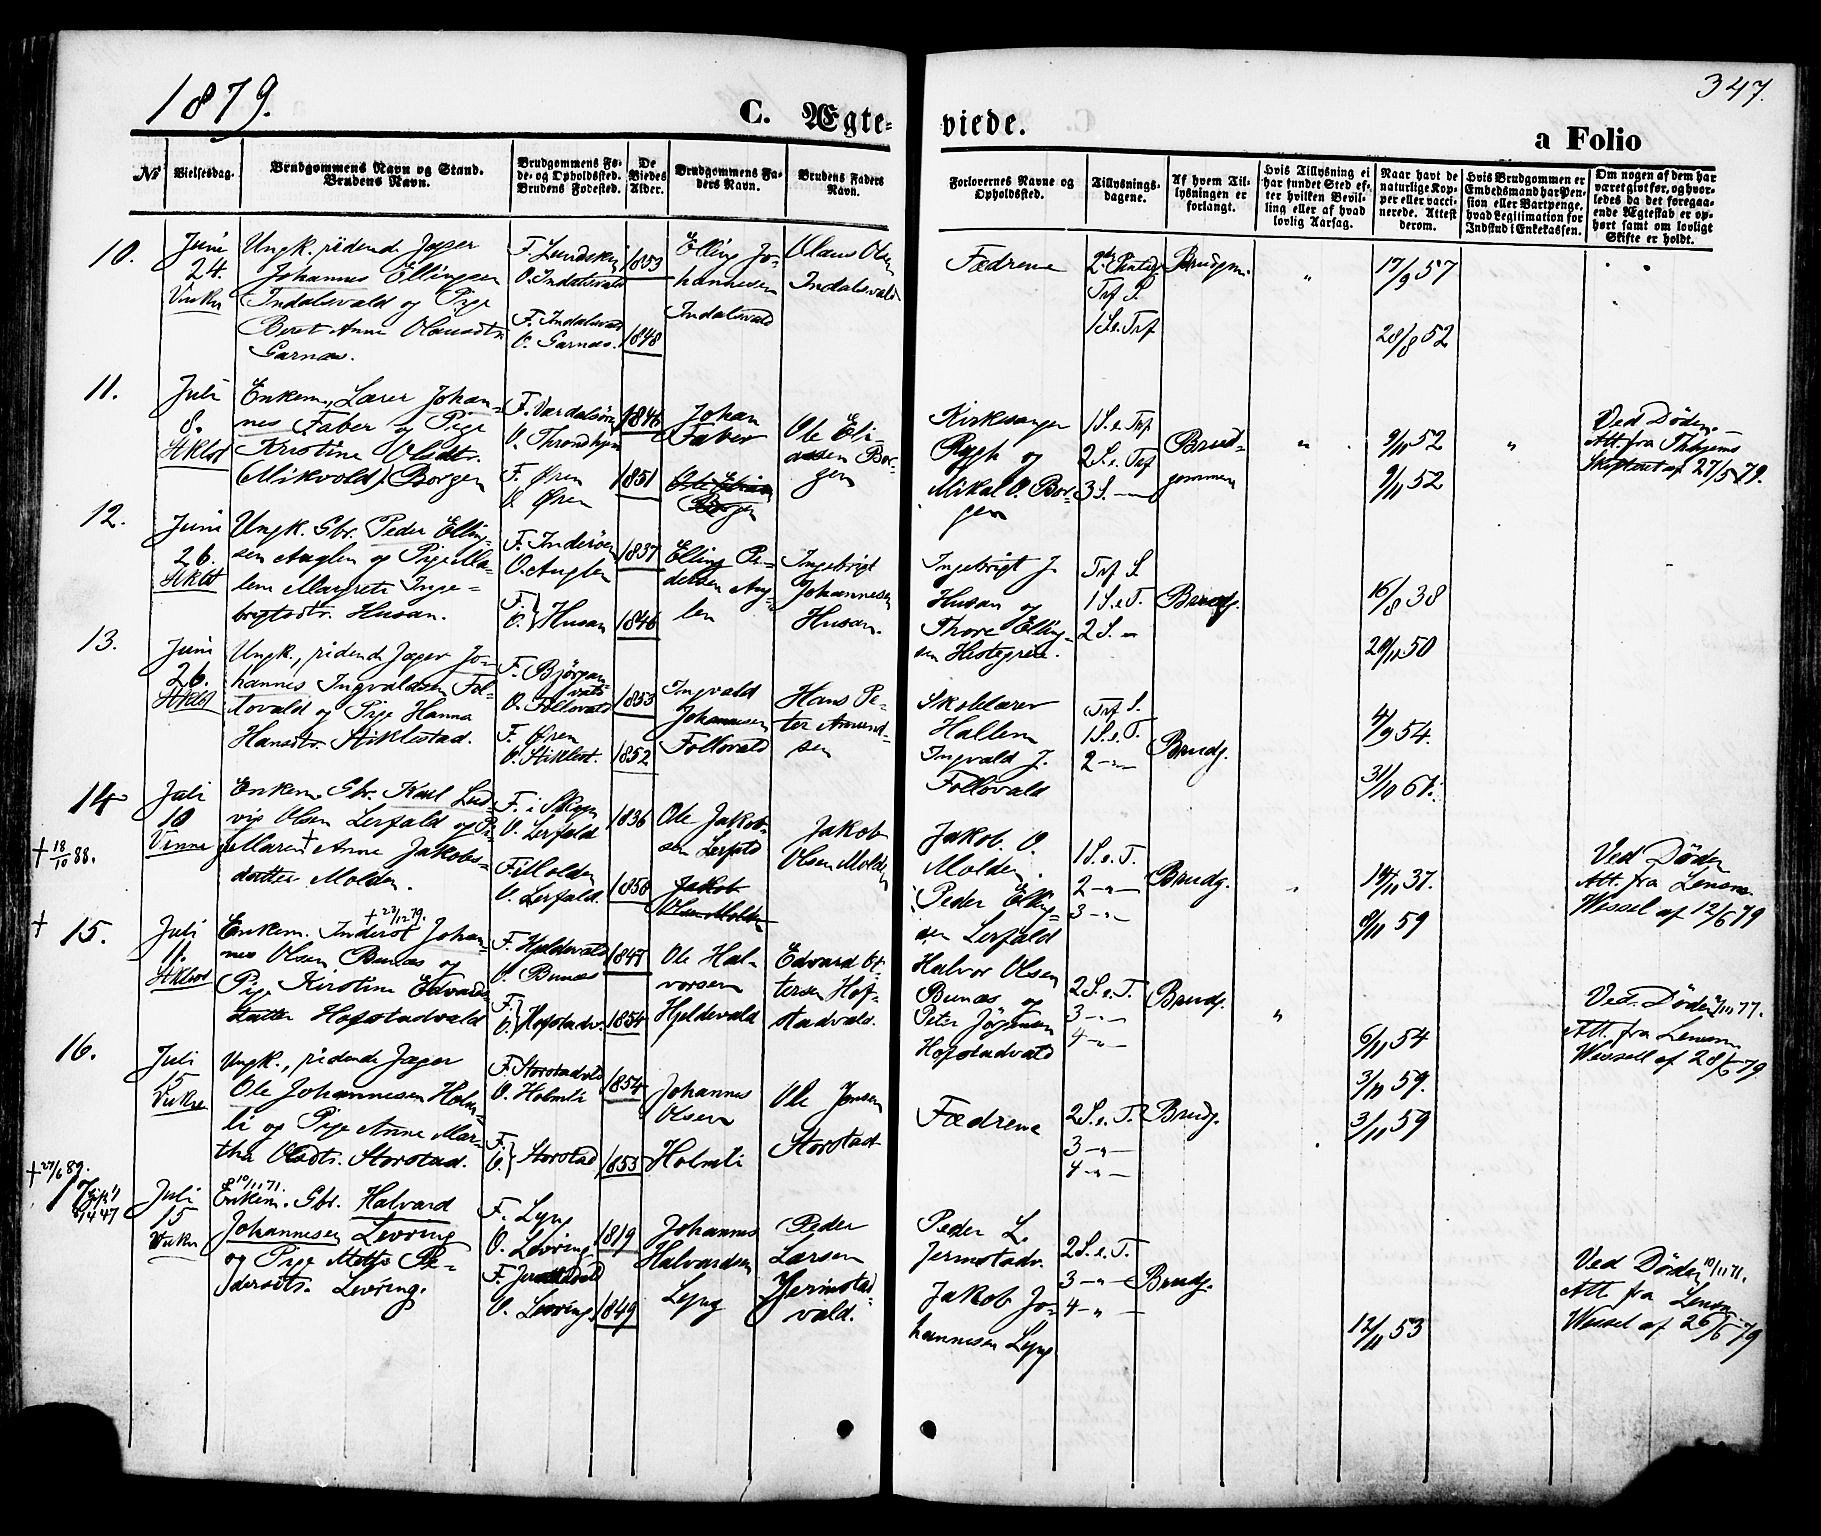 1879.
C. Ægte-
viede.
347.
a Folio
No
Vielsesdag.
Brudgommens Navn og Stand.
Brudens Navn.
Brudgommens Fø-
de- og Opholdssted.
Brudens Fødested.
De
Viedes
Alder.
Brudgommens Fa-
ders Navn.
Brudens Faders
Navn.
Forlovernes Navne og
Opholdssted.
Tillysnings-
dagene.
Af hvem Til-
lysningen er
forlangt.
Hvis Tillysning ei
har fundet Sted ef-
ter hvilken Bevil-
ling eller af hvad
lovlig Aarsag.
Naar havt de
naturlige Kop-
per eller vacci-
nerede. Attest
derom.
Hvis Brudgommen er
Embedsmand har Pen-
sion eller Vartpenge,
hvad Legitimation for
Indskud i Enkekassen.
Om nogen af dem har
været givt før, og hvor-
ledes da det foregaa-
ende Ægteskab er op-
hørt samt om lovligt
Skifte er holdt.
10.
Juni
24.
Vukn
Ungk. ridende Jæger
Johannes Ellingsen
Indalsvald og Pige
Beret Anna Olausdtr.
Garnæs.
O. Indalsvald
F. Indalsvald
O. Garnæs.
1853
1848
Elling Jo-
hannesen
Indalsvald
Olaus Olsen
Indalsvald
Fædrene
Trf S.
1 S. e. Trf
Brudgm.
"
17/9 57
28/8 52
11.
Juli
8.
Stklst
Enkem., Lærer Johan-
nes Faber og Pige
Kristine Olsdtr.
(Mikvold) Borgen
F. Værdalsøren
O. Throndhjem
F. Øren
O. Øren
1846
1851
Johan
Faber
Borgen
Ole Eli-
assen Bor-
gen
Kirkesanger
Rygh og
Mikal O. Bor-
gen
1 S. e. Trf
2 S. e. Trf
3 S. —
Brud-
gommen
"
9/10 52
9/11 52
"
Ved Døden.
Att. fra Thhjems
Skifteret af 27/5 79.
12.
Juni
26.
Stklst
Ungk. Gbr. Peder Elling-
sen Auglen og Pige Ma-
lene Margrete Inge-
brigtsdtr. Husan.
F. Inderøen
O. Auglen
F.
O. } Husan
1837
1846
Elling Pe-
dersen Aug-
len
Ingebrigt
Johannesen
Husan.
Ingebrigt J.
Husan og
Thore Elling-
sen Hestegrei.
Trf S.
1 S. e. T.
2 S. "
Brudg.
16/8 38
29/11 50
13.
Juni
26.
Stklst
Ungk., ridende Jæger Jo-
hannes Ingvaldsen Fol-
lovald og Pige Hanna
Hansdtr. Stiklestad.
F. Bjørgan-
vald
O. Follovald
F. Øren
O. Stiklest.
1853
1852
Ingvald
Johannesen
Follovald
Hans Pe-
ter Amund-
sen
Skolelærer
Hallem
Ingvald J.
Follovald
Trf S.
1 S. e. T.
2 —"—
Brudg.
4/9 54.
31/10 61.
14
† 18/10 88.
Juli
10
Vinne
Enkem. Gbr. Karl Lud-
vig Olsen Lerfald og Pi-
ge Maren † Anne Jakobs-
datter Molden.
F. i Skogn
O. Lerfald
F. Molden
O. Lerfald.
1836
1858
Ole Jakob-
sen Lerfald
Jakob
Olsen Molden
Jakob
Olsen Molden
Jakob O.
Molden.
Peder Elling-
sen Lerfald
1 S. e. T.
2 —"—
3 —"—
Brudg.
"
19/11 37.
9/11 59
Ved Døden
Att. fra Lensm.
Wessel af 12/6 79
†
15.
Juli
11.
Stklst
† 23/12 79.
Enkem. Inderst Johan-
nes Olsen Bunæs og
Pige Kirstine Edvards-
datter Hofstadvald
F. Hjeldevald
O. Bunæs
F.
O. } Hofstadv.
1847
1854
Ole Hal-
vorsen
Hjeldevald
Edvard Ot-
tersen Hof-
stadvald.
Halvor Olsen
Bunæs og
Peter Jørgensen
Hofstadvald
2 S. e. T.
3 —"—
4 —"—
Brudg.
"
6/11 54
3/11 59.
Att. fra Lensm.
Wessell af 28/6 79.
16.
Juli
15
Vukn
Ungk., ridende Jæger
Ole Johannesen Holm-
li og Pige Anne Mar-
tha Olsdtr. Storstad.
F. Storstadvld
O. Holmli
F.
O. } Storstad
1854
1853
Johannes
Olsen
Holmli
Ole Jensen
Storstad
Fædrene
2 S. e. T.
3 —"—
4 —"—
2 Brudg.
3/11 59
† 27/6 89.
17
Juli
15
Vukn
10/11 71
Enkem. Gbr. Halvard
Johannesen Levring
og Pige Metje Pe-
dersdtr. Levring.
F. Lyng
O. Levring
O. Levring
1819
1849
Johannes
Halvardsen
Lyng
Peder
Larsen
Jermstad-
vald.
Peder L.
Jermstadv.
Jakob Jo-
hannesen Lyng
2 S. e. T.
3 —"—
4 —"—
Brudg.
12/11 53
Ved Døden 10/11 71.
Att. fra Lensm.
Wessel af 26/6 79